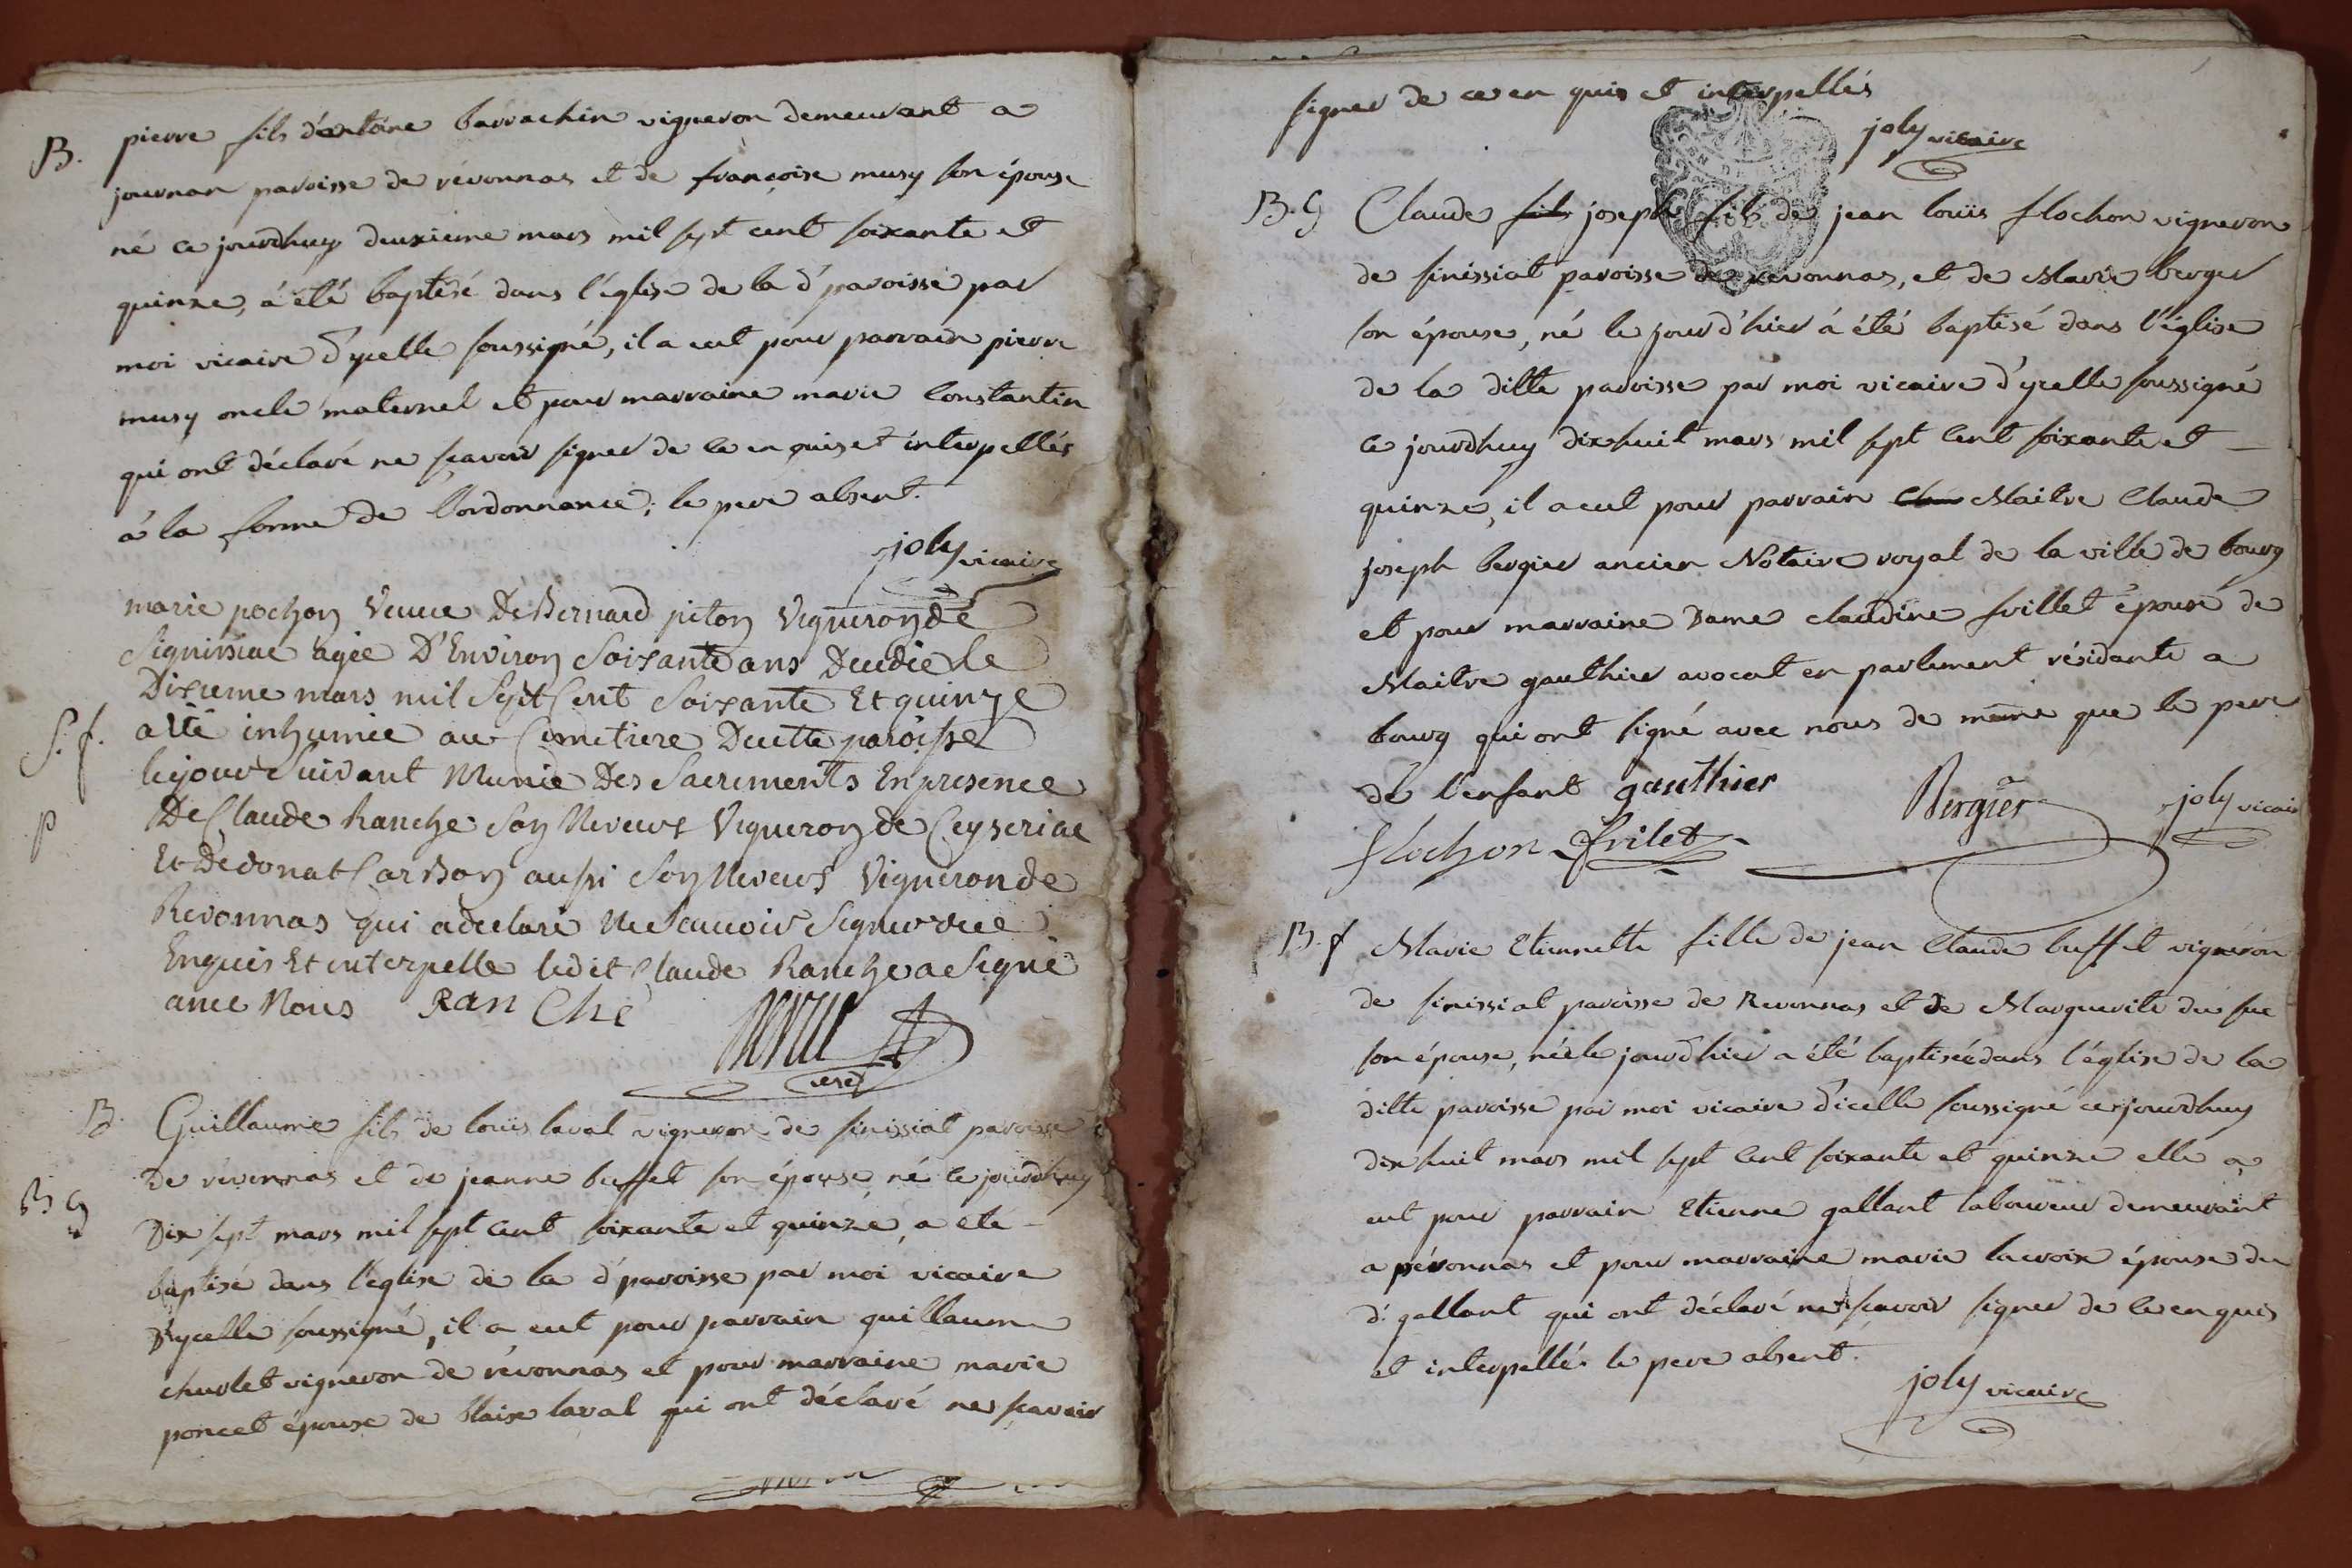 B. pierre fils d'antoine barrachin vigneron demeurant a
journan paroisse de révonnas et de françoise musy son épouse
né ce jourdhuy deuxieme mars mil sept cent soixante et
quinze, á été baptisé dans l'église de la d' paroisse par
moi vicaire d'ycelle soussigné, il a eut pour parrain pierre
musy oncle maternel et pour marraine marie Constantin
qui ont déclaré ne sçavoir signer de ce enquis et interpellés
á la forme de l'ordonnance; le pere absent.
joly vicaire
marie pochon Veuve De Bernard piton Vigneron de
Signissiac agée D'Environ Soixante ans Decedée le
Dixieme mars mil Sept Cent Soixante Et quinze
S. f. a été inhumée au Cimetiere De cette paroisse
le jour Suivant Munie Des Sacrements En presence
p De Claude Ranche Son Neveux Vigneron de Ceyseriac
Et De donat Carbon aussi Son Neveux Vigneron de
Revonnas qui a declaré Ne Scavoir Signer de ce
Enquis Et interpelle ledit Claude Ranche a Signé
avec Nous Ran Che
curé
B. Guillaume fils de louis laval vigneron de sinissiat paroisse
de révonnas et de jeanne buffet son épouse, né ce jourdhuy
B g Dix sept mars mil sept cent soixante et quinze, a été
baptisé dans l'église de la d' paroisse par moi vicaire
d'ycelle soussigné, il a eut pour parrain guillaume
churlet vigneron de révonnas et pour marraine marie
poncet épouse de blaise laval qui ont déclaré ne sçavoir
signer de ce en quis et interpellés
joly vicaire
B. G Claude fils joseph fils de jean louïs flochon vigneron
de sinissiat paroisse de revonnas, et de Marie berger
son épouse, né le jour d'hier á été baptisé dans l'église
de la ditte paroisse par moi vicaire d'ycelle soussigné
ce jourdhuy dixhuit mars mil sept cent soixante et
quinze, il a eut pour parrain Maitre Claude
joseph bergier ancien Notaire royal de la ville de bourg
et pour marraine Dame claudine frillet épouse de
Maitre gauthier avocat en parlement résidante a
bourg qui ont signé avec nous de même que le pere
de l'enfant gauthier Bergier joly vicaire
flochon frilet
B. f Marie Etiennette fille de jean Claude buffet vigneron
de sinissiat paroisse de Revonnas et de Marguerite du suc
son épouse, née le jourd'hier a été baptisée dans l'église de la
ditte paroisse par moi vicaire d'icelle soussigné ce jourdhuy
dix huit mars mil sept cent soixante et quinze elle a
eut pour parrain Etienne gallant laboureur demeurant
a péronnas et pour marraine marie lacroix épouse du
d. gallant qui ont déclaré ne sçavoir signer de ce enquis
et interpellé. le pere absent.
joly vicaire